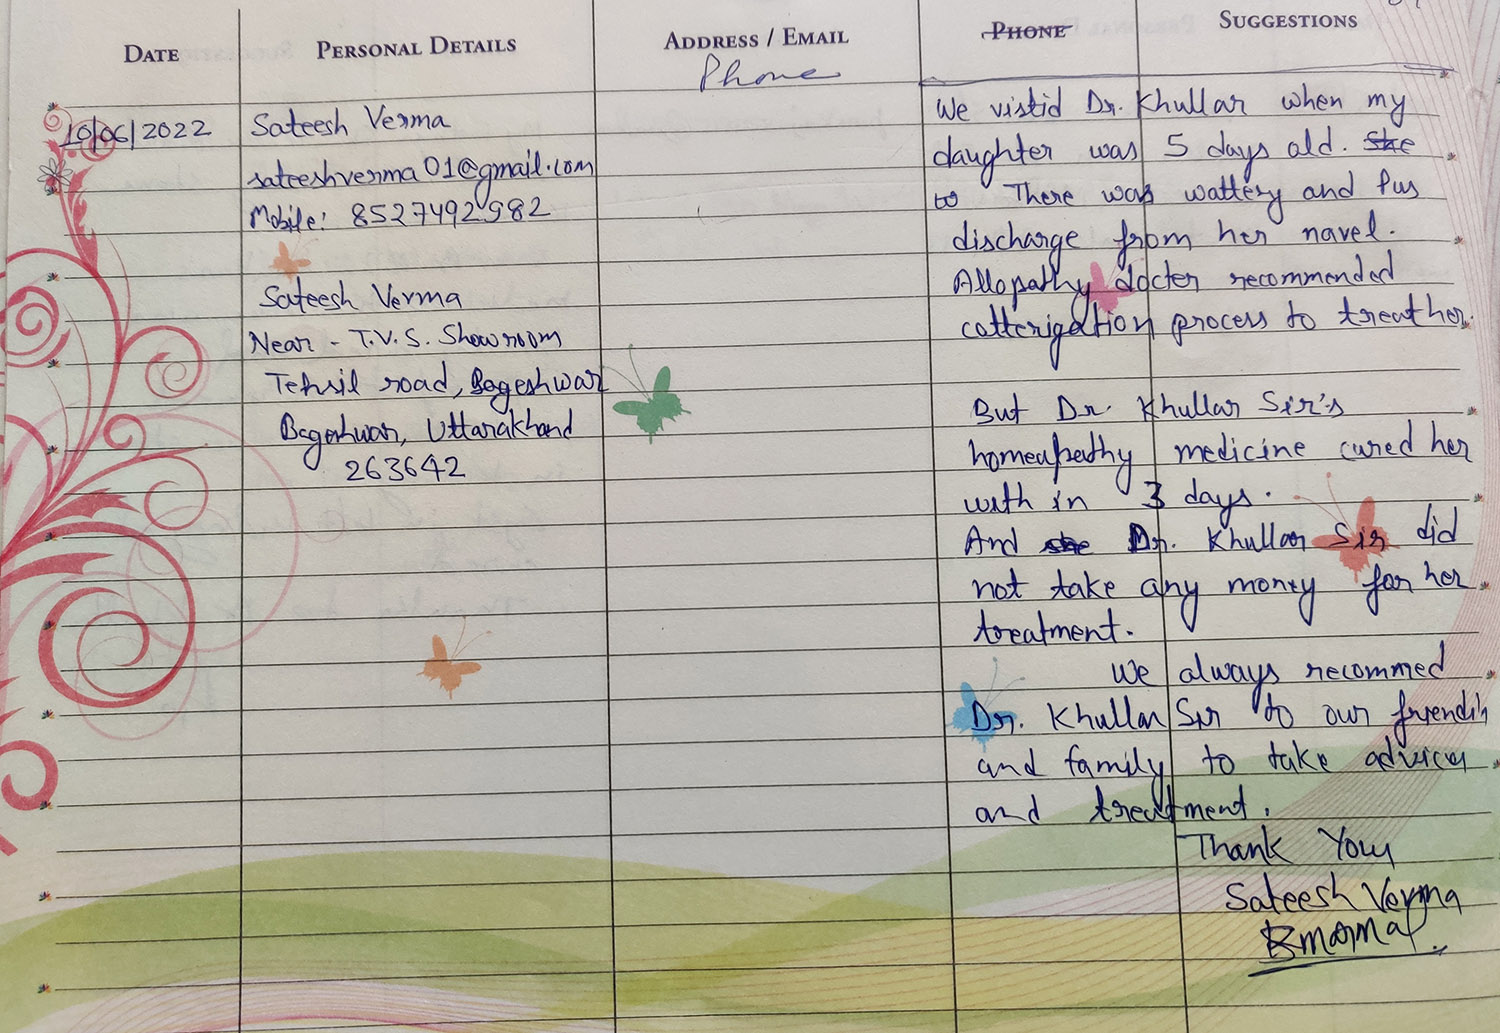 DATE
PERSONAL DETAILS
ADDRESS / EMAIL
PHONE
SUGGESTIONS
Phone
10/06/2022
Sateesh Verma
sateeshverma01@gmail.com
Mobile: 8527492982
Sateesh Verma
Near - T.V.S. Showroom
Tehsil road, Bageshwar
Bageshwar, Uttarakhand
263642
We vistid Dr. Khullar when my
daughter was 5 days old. She
to There was wattery and Pus
discharge from her navel.
Allopathy docter recommended
cotterigation process to treat her.
But Dr. Khullar Sir's
homeapathy medicine cured her
with in 3 days.
And she Dr. Khullar Sir did
not take any money for her
treatment.
We always recommed
Dr. Khullar Sir to our
and family to take
and treatment.
Thank You
Sateesh Verma